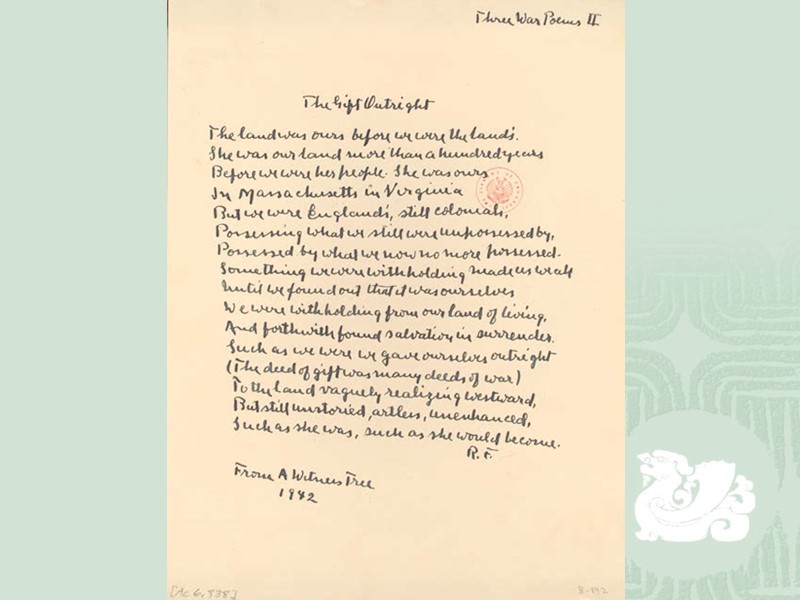 Three War Poems II
The Gift Outright
The land was ours before we were the land's.
She was our land more than a hundred years
Before we were her people. She was ours
In Massachusetts in Virginia
But we were England's, still colonials,
Possessing what we still were unpossessed by,
Possessed by what we now no more possessed.
Something we were withholding made us weak
Until we found out that it was ourselves
We were withholding from our land of living,
And forthwith found salvation in surrender.
Such as we were we gave ourselves outright
(The deed of gift was many deeds of war)
To the land vaguely realizing westward,
But still unstoried, artless, unenhanced,
Such as she was, such as she would become.
R. F.
From A Witness Tree
1942
[Ac 6,538]